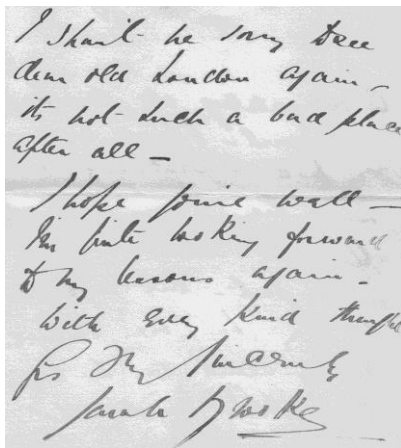 I shan't be sorry to see
dear old London again –
its not such a bad place
after all –
I hope you're well –
I'm quite looking forward
to my lessons again –
with every kind thought
Yrs Sincerely
Sarah Brooke